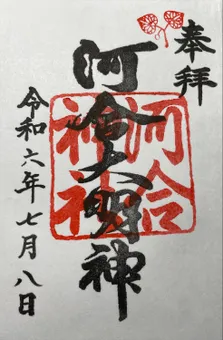 奉拝
河合大明神
河合神社
令和六年七月八日